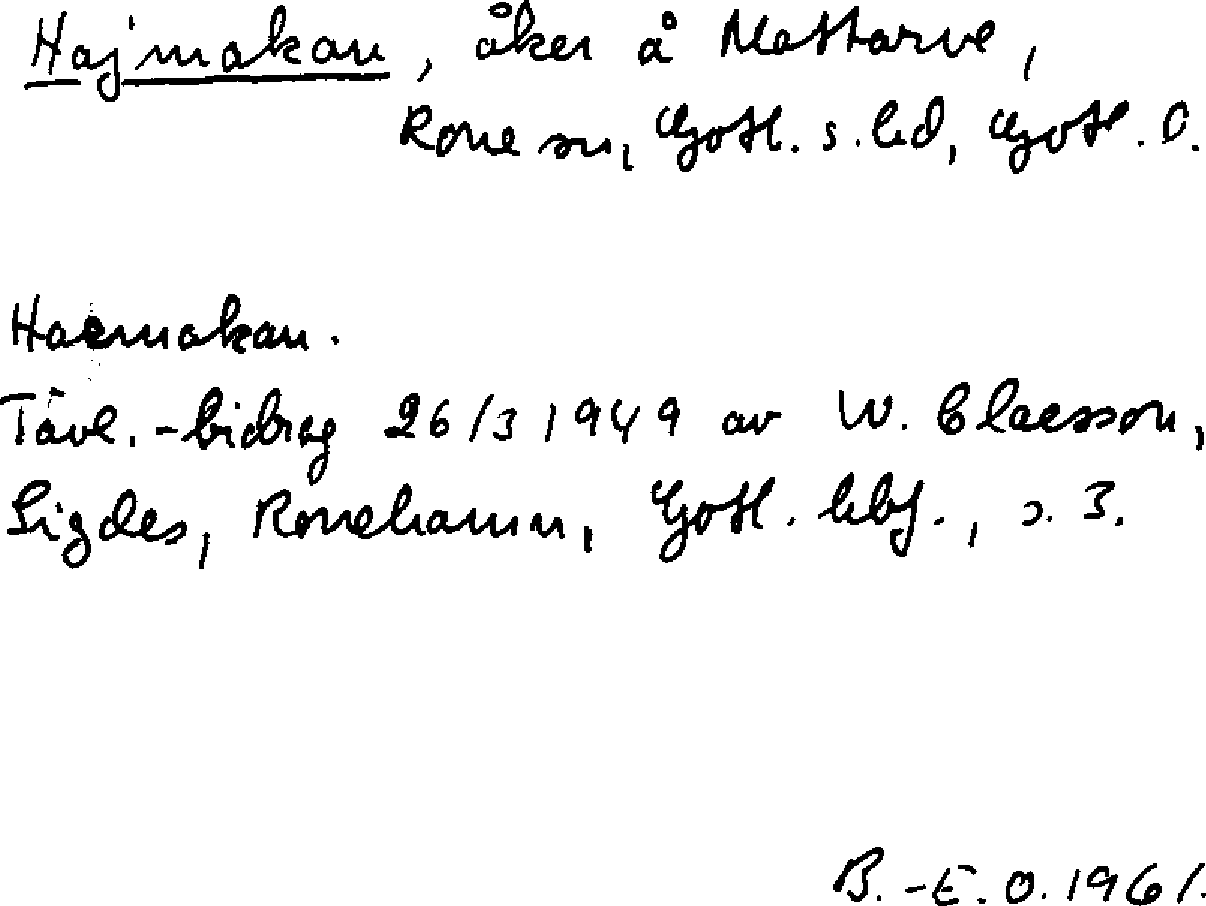 Hajmakan, åker å Mattarve,
Rone sn, Gotl. s. hd, Gotl. l.
Haemakan.
Tävl.-bidrag 26/3 1949 av W. Claesson,
Sigdes, Ronehamn, Gotl. hbf., s. 3.
B.-E. O. 1961.